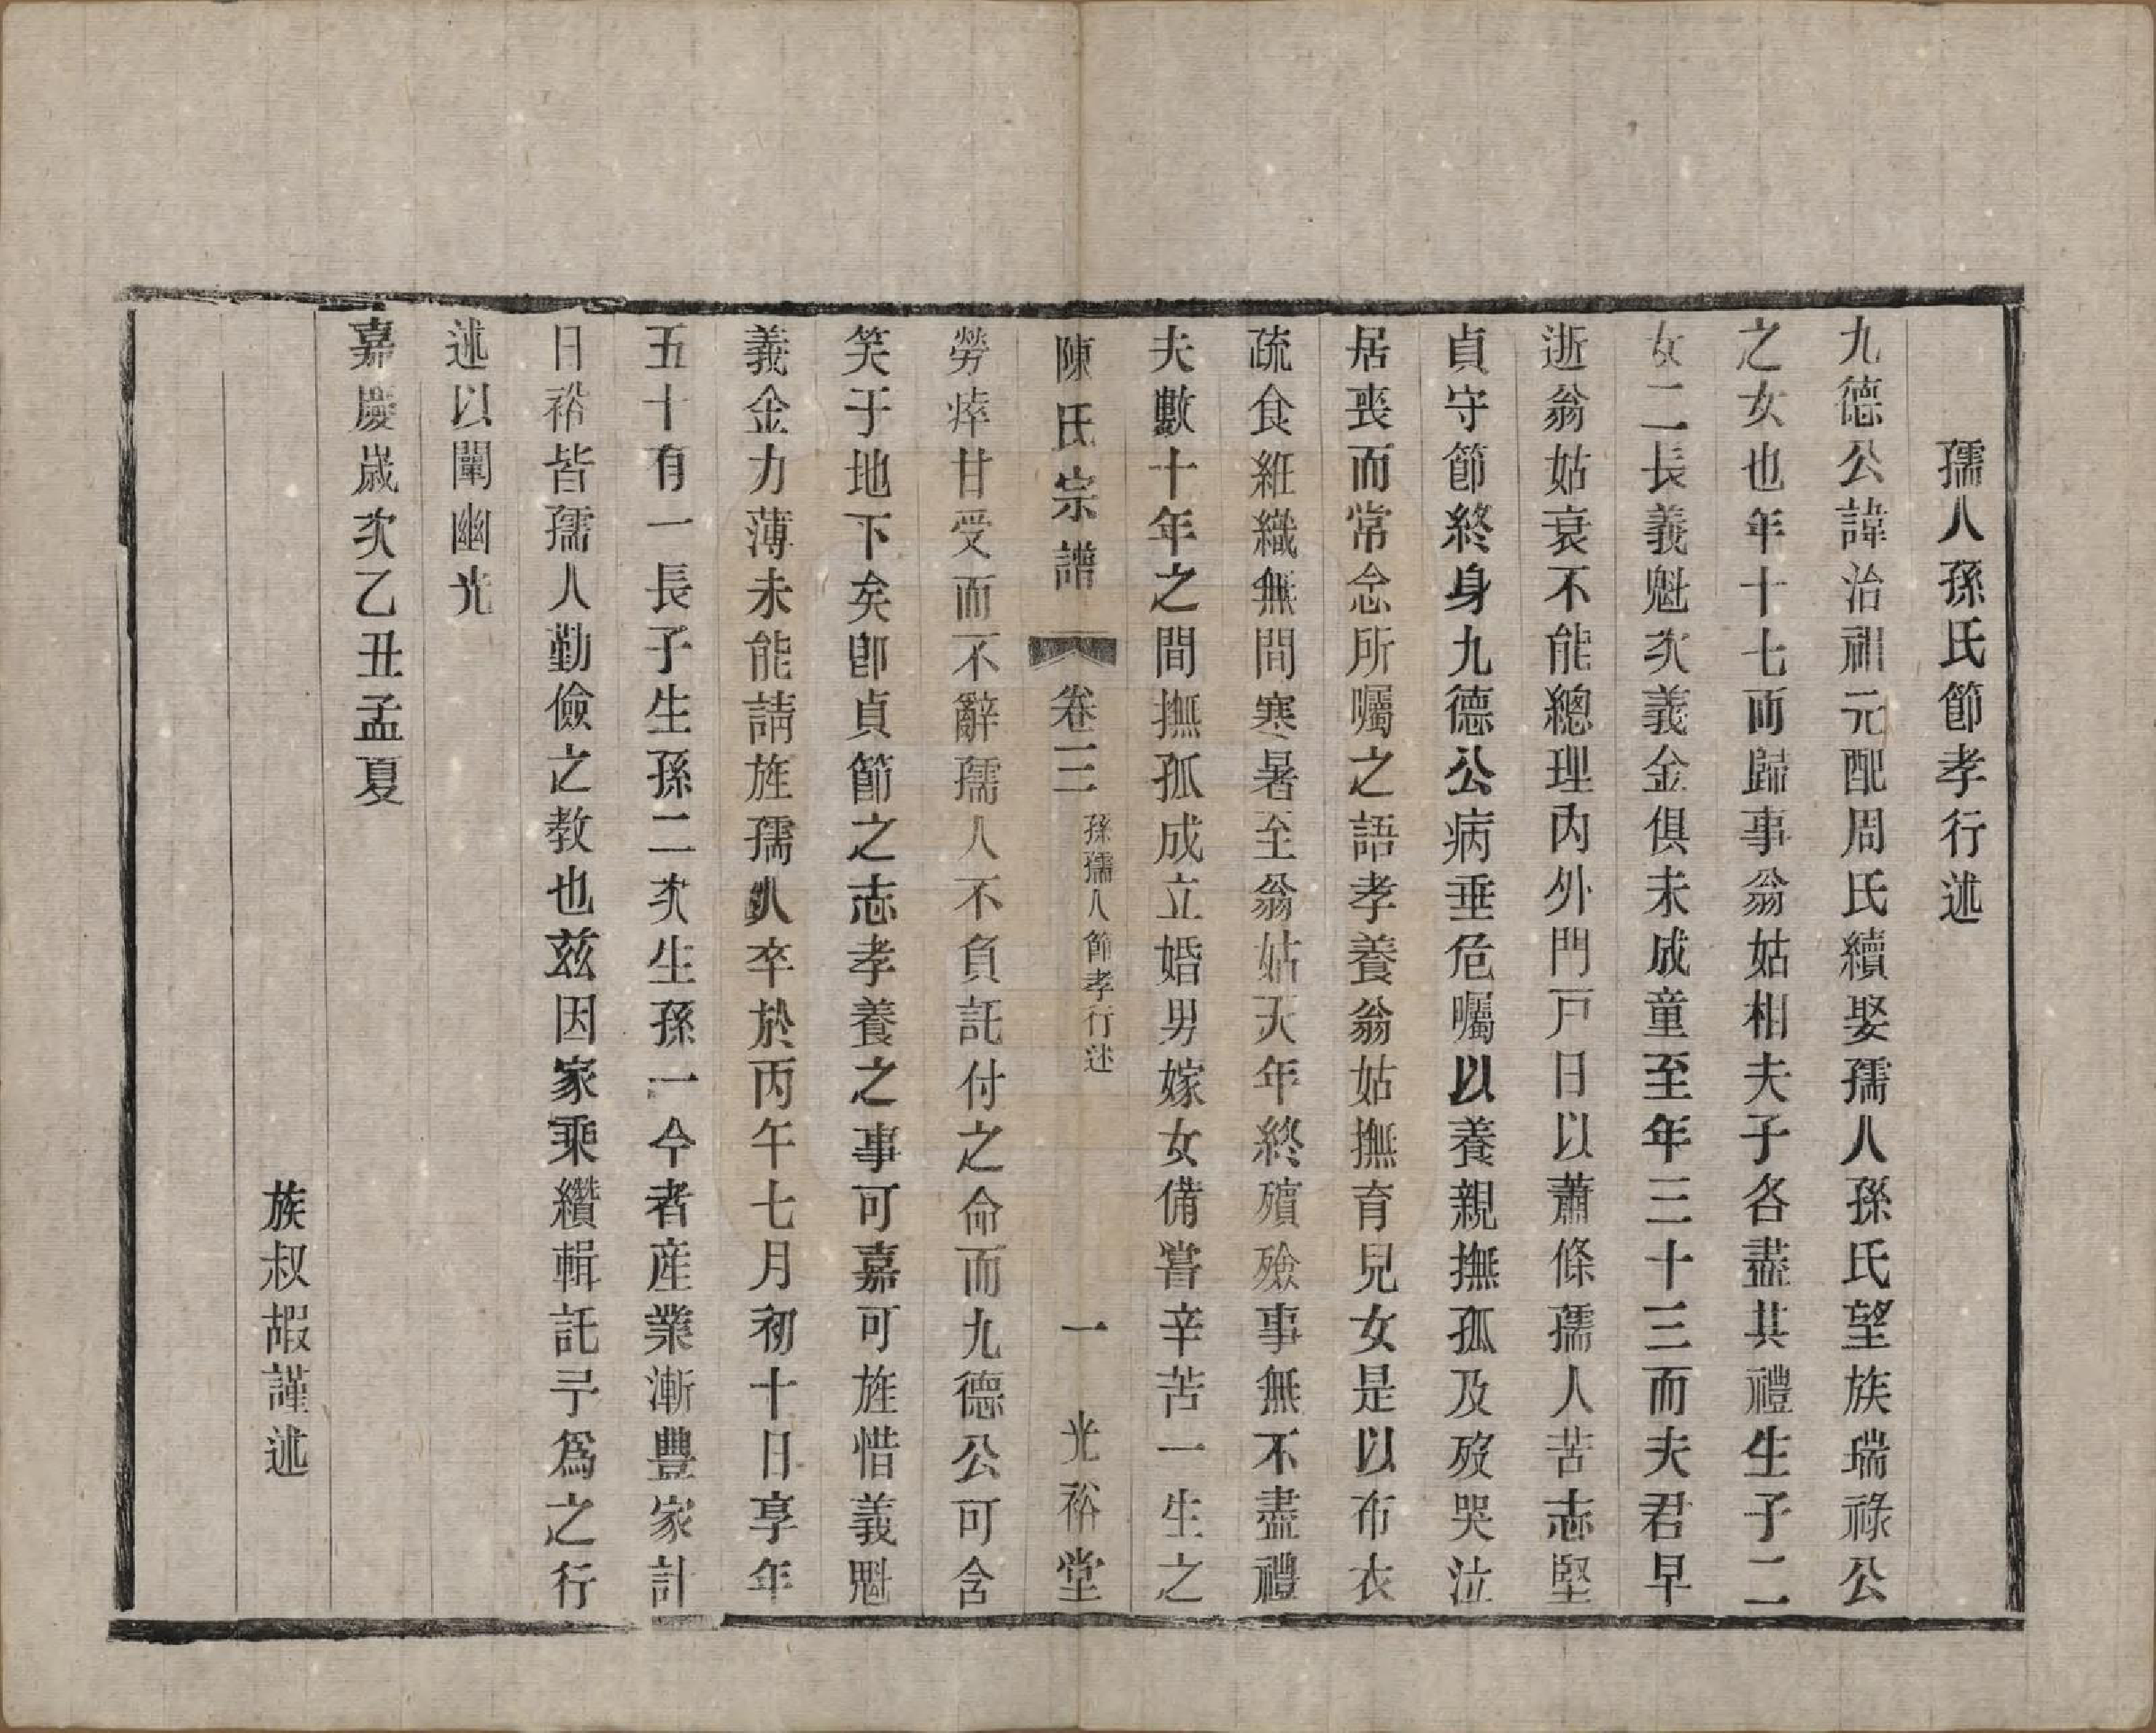 孺人孫氏節孝行述
九德公諱治祖元配周氏續娶孺人孫氏望族瑞祿公
之女也年十七而歸事翁姑相夫子各盡其禮生子二
女二長義魁次義金俱未成童至年三十三而夫君早
逝翁姑衰不能總理內外門戸日以蕭條孺人苦志堅
貞守節終身九德公病垂危囑以養親撫孤及歿哭泣
居喪而常念所囑之語孝養翁姑撫育兒女是以布衣
疏食紝織無間寒暑至翁姑天年終殯殮事無不盡禮
夫數十年之間撫孤成立婚男嫁女備嘗辛苦一生之
陳氏宗譜 卷三 孫孺人節孝行述 一 光裕堂
勞瘁甘受而不辭孺人不負託付之命而九德公可含
笑于地下矣卽貞節之志孝養之事可嘉可旌惜義魁
義金力薄未能請旌孺人卒於丙午七月初十日享年
五十有一長子生孫二次生孫一今者産業漸豐家計
日裕皆孺人勤儉之教也茲因家乘纘輯託予爲之行
述以闡幽光
嘉慶歲次乙丑孟夏
族叔嘏謹述